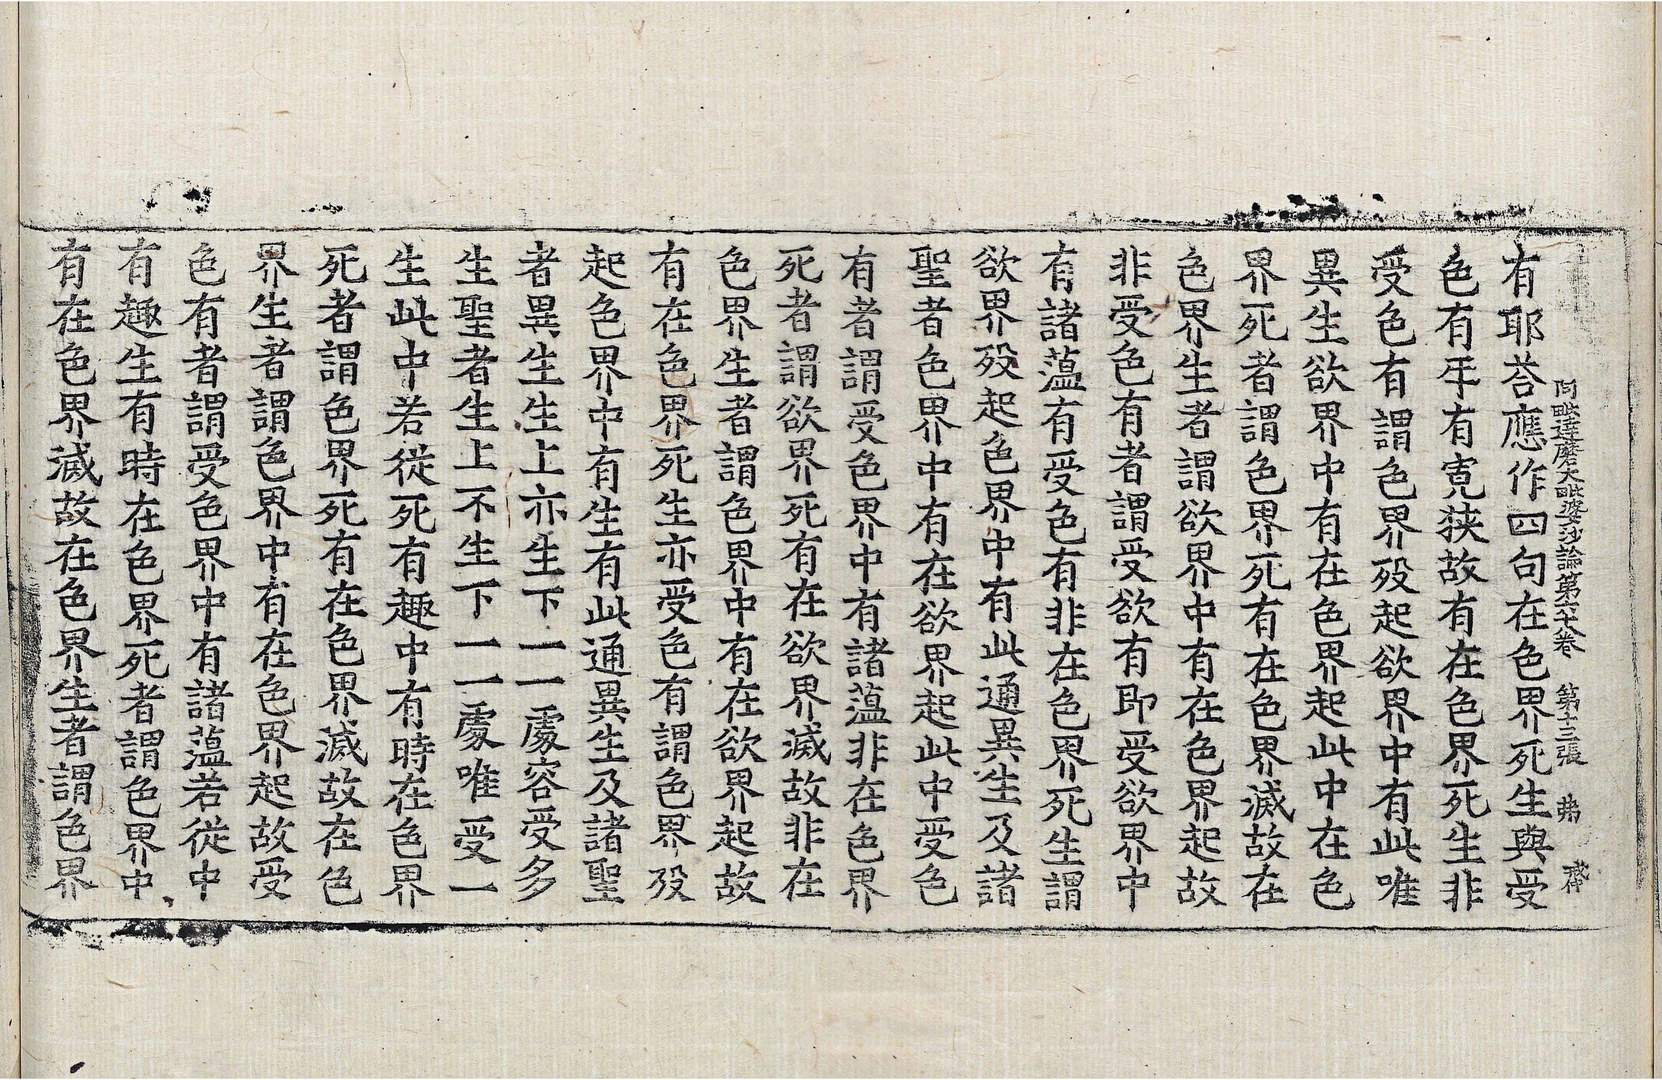 阿毗達磨大毗婆沙論第六十八卷 第十三張 弗
有耶荅應作四句在色界死生與受
色有互有寬狹故有在色界死生非
受色有謂色界歿起欲界中有此唯
異生欲界中有在色界起此中在色
界死者謂色界死有在色界滅故在
色界生者謂欲界中有在色界起故
非受色有者謂受欲有即受欲界中
有諸蘊有受色有非在色界死生謂
欲界歿起色界中有此通異生及諸
聖者色界中有在欲界起此中受色
有者謂受色界中有諸蘊非在色界
死者謂欲界死有在欲界滅故非在
色界生者謂色界中有在欲界起故
有在色界死生亦受色有謂色界歿
起色界中有生有此通異生及諸聖
者異生生上亦生下一一處容受多
生聖者生上不生下一一處唯受一
生此中若從死有趣中有時在色界
死者謂色界死有在色界滅故在色
界生者謂色界中有在色界起故受
色有者謂受色界中有諸蘊若從中
有趣生有時在色界死者謂色界中
有在色界滅故在色界生者謂色界